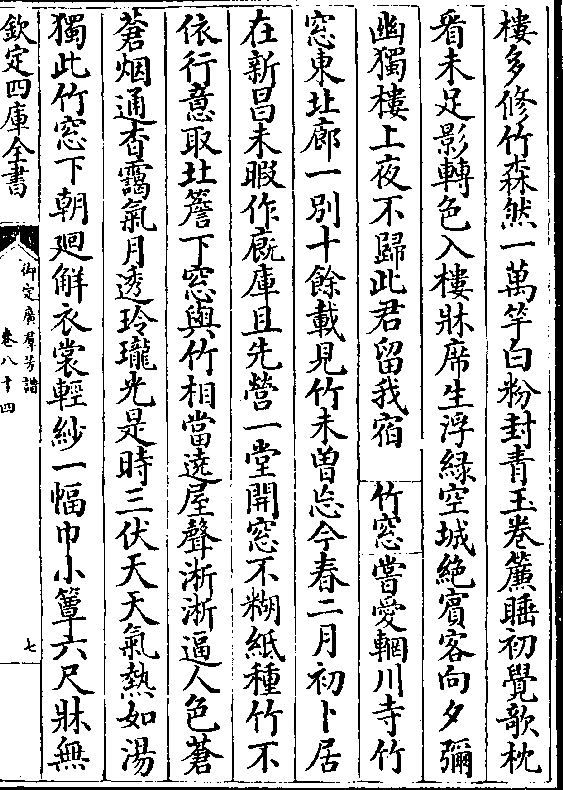 樓多修竹森然一萬竿白粉封青玉卷簾睡初覺欹枕
看未足影轉色入樓牀席生浮緑空城絶賓客向夕彌
幽獨樓上夜不歸此君留我宿　竹窓嘗愛輞川寺竹
窓東北廊一别十餘載見竹未曽忘今春二月初卜居
在新昌未暇作廐庫且先營一堂開窓不糊紙種竹不
依行意取北簷下窓與竹相當遶屋聲淅淅逼人色蒼
蒼烟通杳靄氣月透玲瓏光是時三伏天天氣熱如湯
獨此竹窓下朝廻解衣裳輕紗一幅巾小簟六尺牀無
欽定四庫全書
御定廣羣芳譜
卷八十四
七